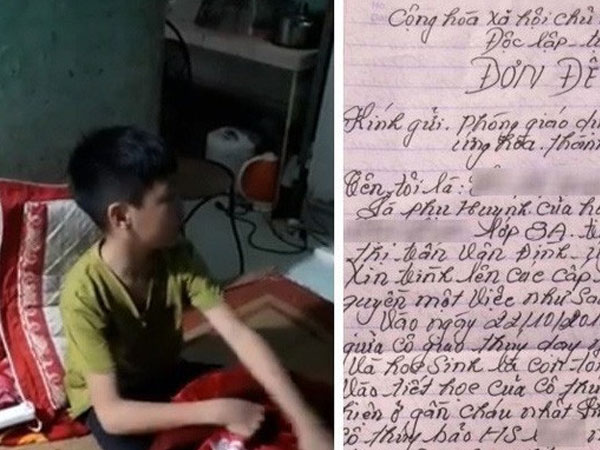 Cộng hòa xã hội chủ
Độc lập - t
ĐƠN ĐỀ
Kính gửi. Phòng giáo dụ
ứng hòa. thàn
Tên tôi là :
Là phụ Huynh của h
lớp 8A. t
thị trấn Vân Đình.
Xin trình lên cac cấp
quyền một việc như Sau
Vào ngày 22/10/201
giữa cô giáo thuy dạy
Và học Sinh là con tôi
Vào tiết học của Cô thu
hiên ở gần cháu nhất
Cô thuy bảo HS